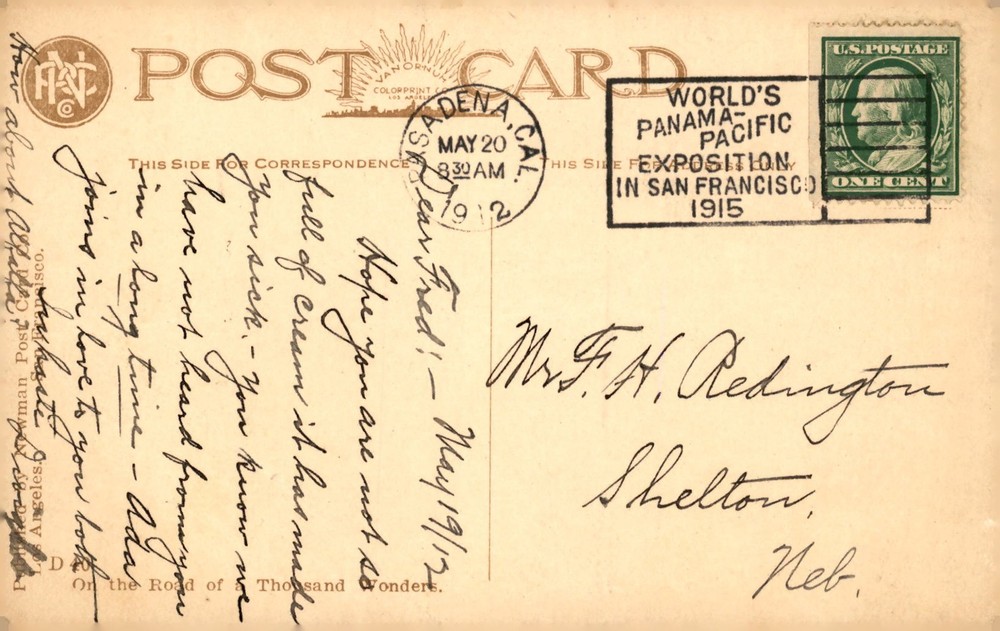 POST CARD
VAN ORNUM
COLORPRINT CO.
LOS ANGELES
THIS SIDE FOR CORRESPONDENCE
THIS SIDE FOR ADDRESS ONLY
PASADENA, CAL.
MAY 20
8 30 AM
1912
WORLD'S
PANAMA-
PACIFIC
EXPOSITION
IN SAN FRANCISCO
1915
U.S. POSTAGE
ONE CENT
Dear Fred! - May 19/12
Hope you are not so
full of cream it has made
you sick. - You know we
have not heard from you
in a long time - Ada
joins in love to you both
How about
Mr F. H. Redington
Shelton,
Neb.
Newman Post Card Co.
Los Angeles, San Francisco.
On the Road of a Thousand Wonders.